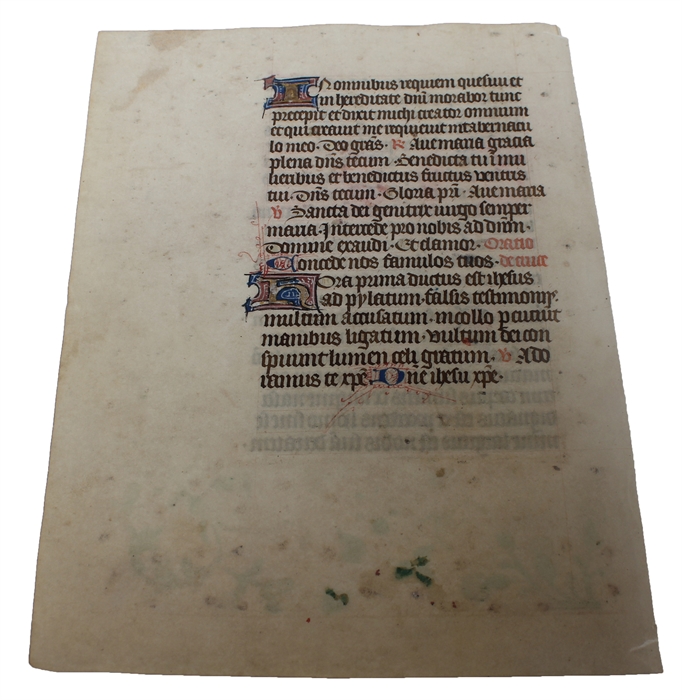 In omnibus requiem quesiui et
in hereditate dnī morabor tunc
precepit et dixit michi creator omnium
et qui creauit me requieuit in tabernacu
lo meo · Deo grās · R Aue maria gracia
plena dns tecum · Benedicta tu ī mu
lieribus et benedictus fructus ventris
tui · Dns tecum · Gloria prī · Aue maria
V Sancta dei genitrix uirgo semper
maria · Intercede pro nobis ad dnm ·
Domine exaudi · Et clamor · Oratio
Concede nos famulos tuos · de cruce
Hora prima ductus est ihesus
ad pylatum · falsis testimonijs ·
multum accusatum · in collo pcutiūt
manibus ligatum · vultum dei con
spuunt lumen celi gratum · V Ado
ramus te xpē · Dnē ihesu xpē ·